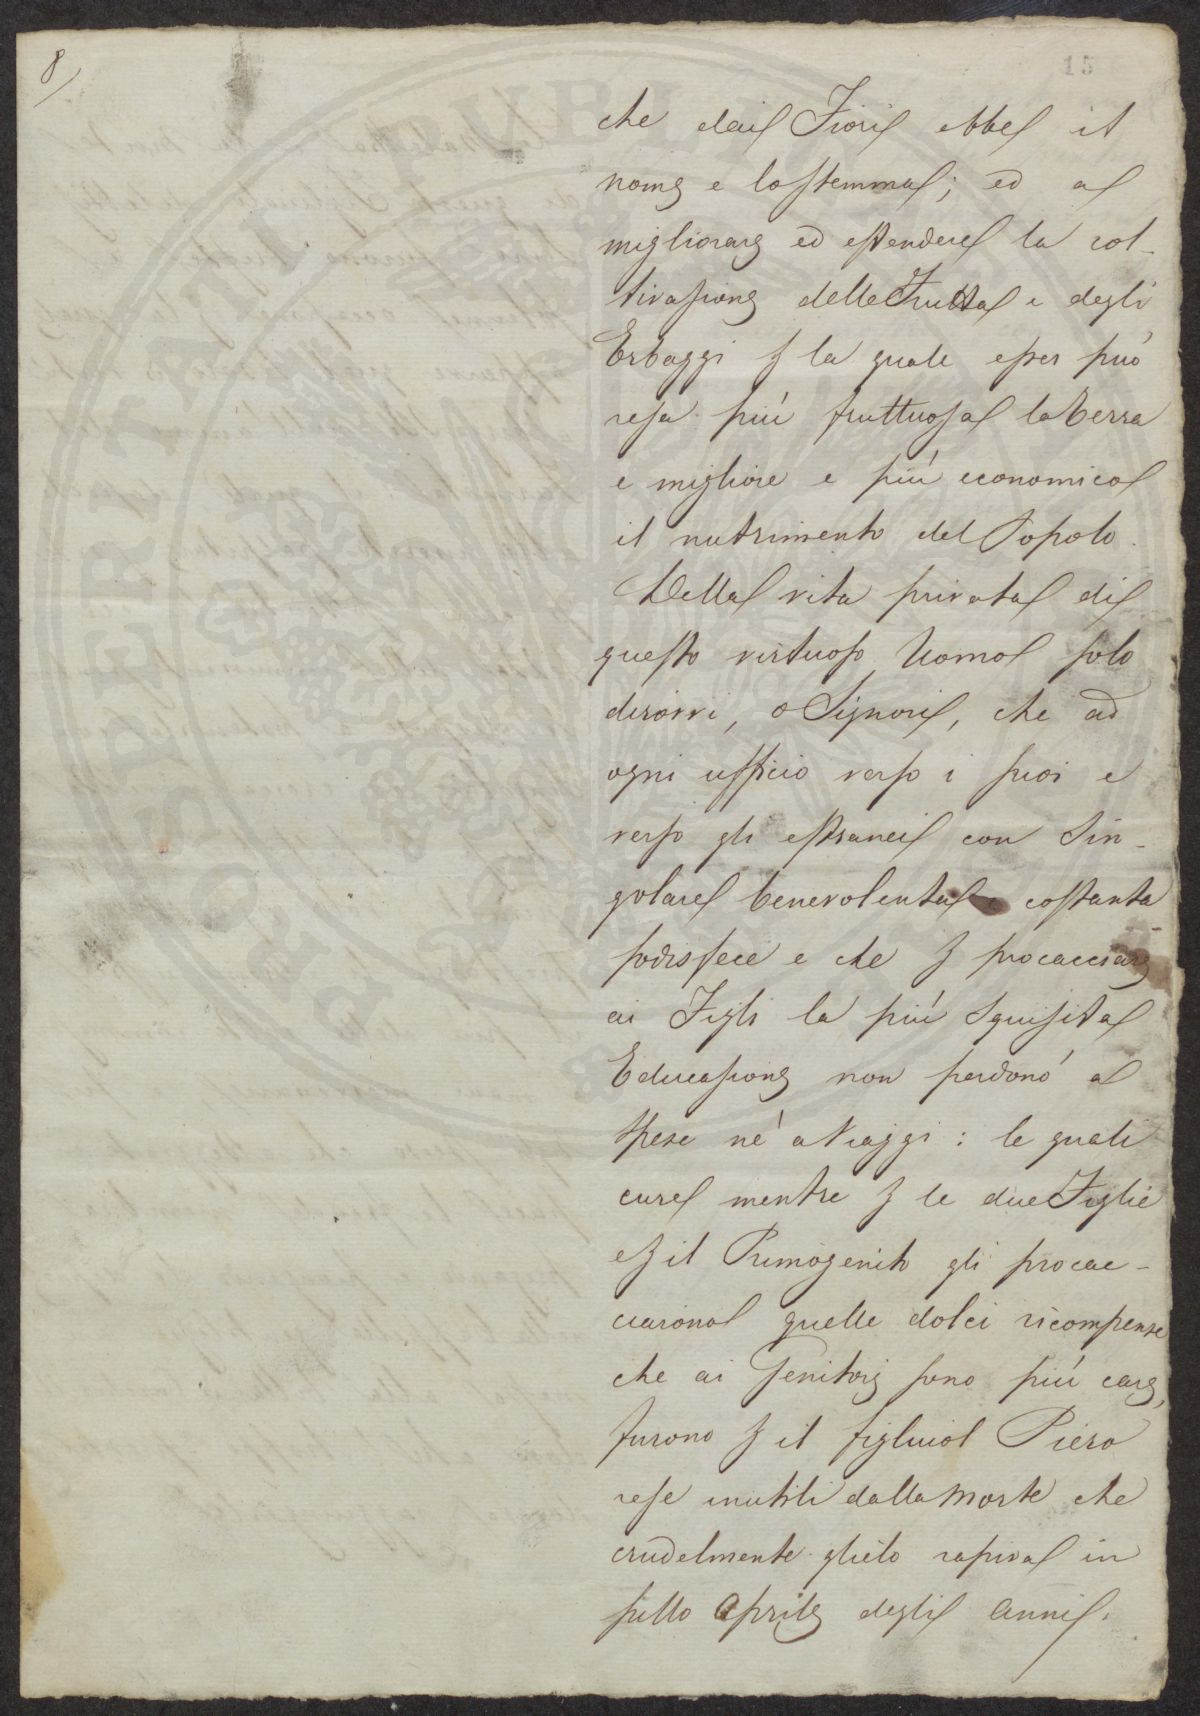 8/
15
che dai Fiori ebbe il
nome e lo stemma; ed a
migliorare ed estendere la col-
tivasione delle Frutta e degli
Erbaggi p la quale esser può
resa più fruttuosa la Terra
e migliore e più economico
il nutrimento del Popolo.
Della vita privata di
questo virtuoso Uomo solo
dirovvi, o Signori, che ad
ogni ufficio verso i suoi e
verso gli estranei con Sin-
golare benevolenta e costanta
sodisfece e che p procacciare
ai Figli la più Squisita
Educasione non perdonò a
Spese nè a Viaggi: le quali
cure mentre p le due Figlie
e p il Primogenito gli procac-
ciarono quelle dolci ricompense
che ai Genitori sono più care,
furono p il figliuol Piero
rese inutili dalla Morte che
crudelmente glielo rapiva in
sullo Aprile degli Anni.